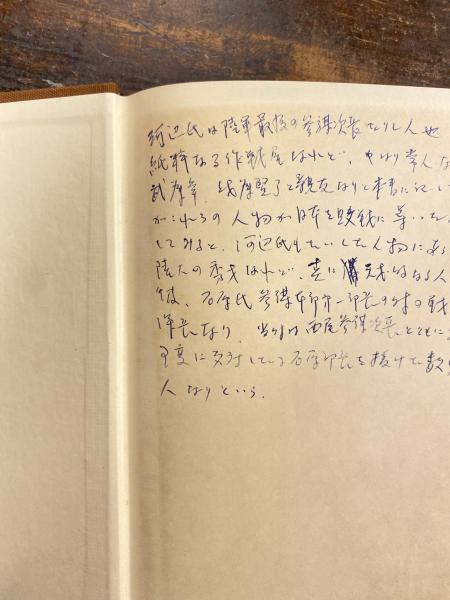 河辺氏は陸軍最後の参謀次長たりし人也
純粋なる作戦屋なれど、やはり常人な
武藤章、田中新一と親友なりと本書に記して
がこれらの人物が日本を敗戦に導いた
してみると、河辺氏もたいした人物にあら
陸大の秀才なれど、真に 戦略的なる人
彼、石原氏参謀本部第一部長の時の戦
課長なり、当時は西尾参謀次長とともに
事変に反対している石原部長を援けた数
人なりという.